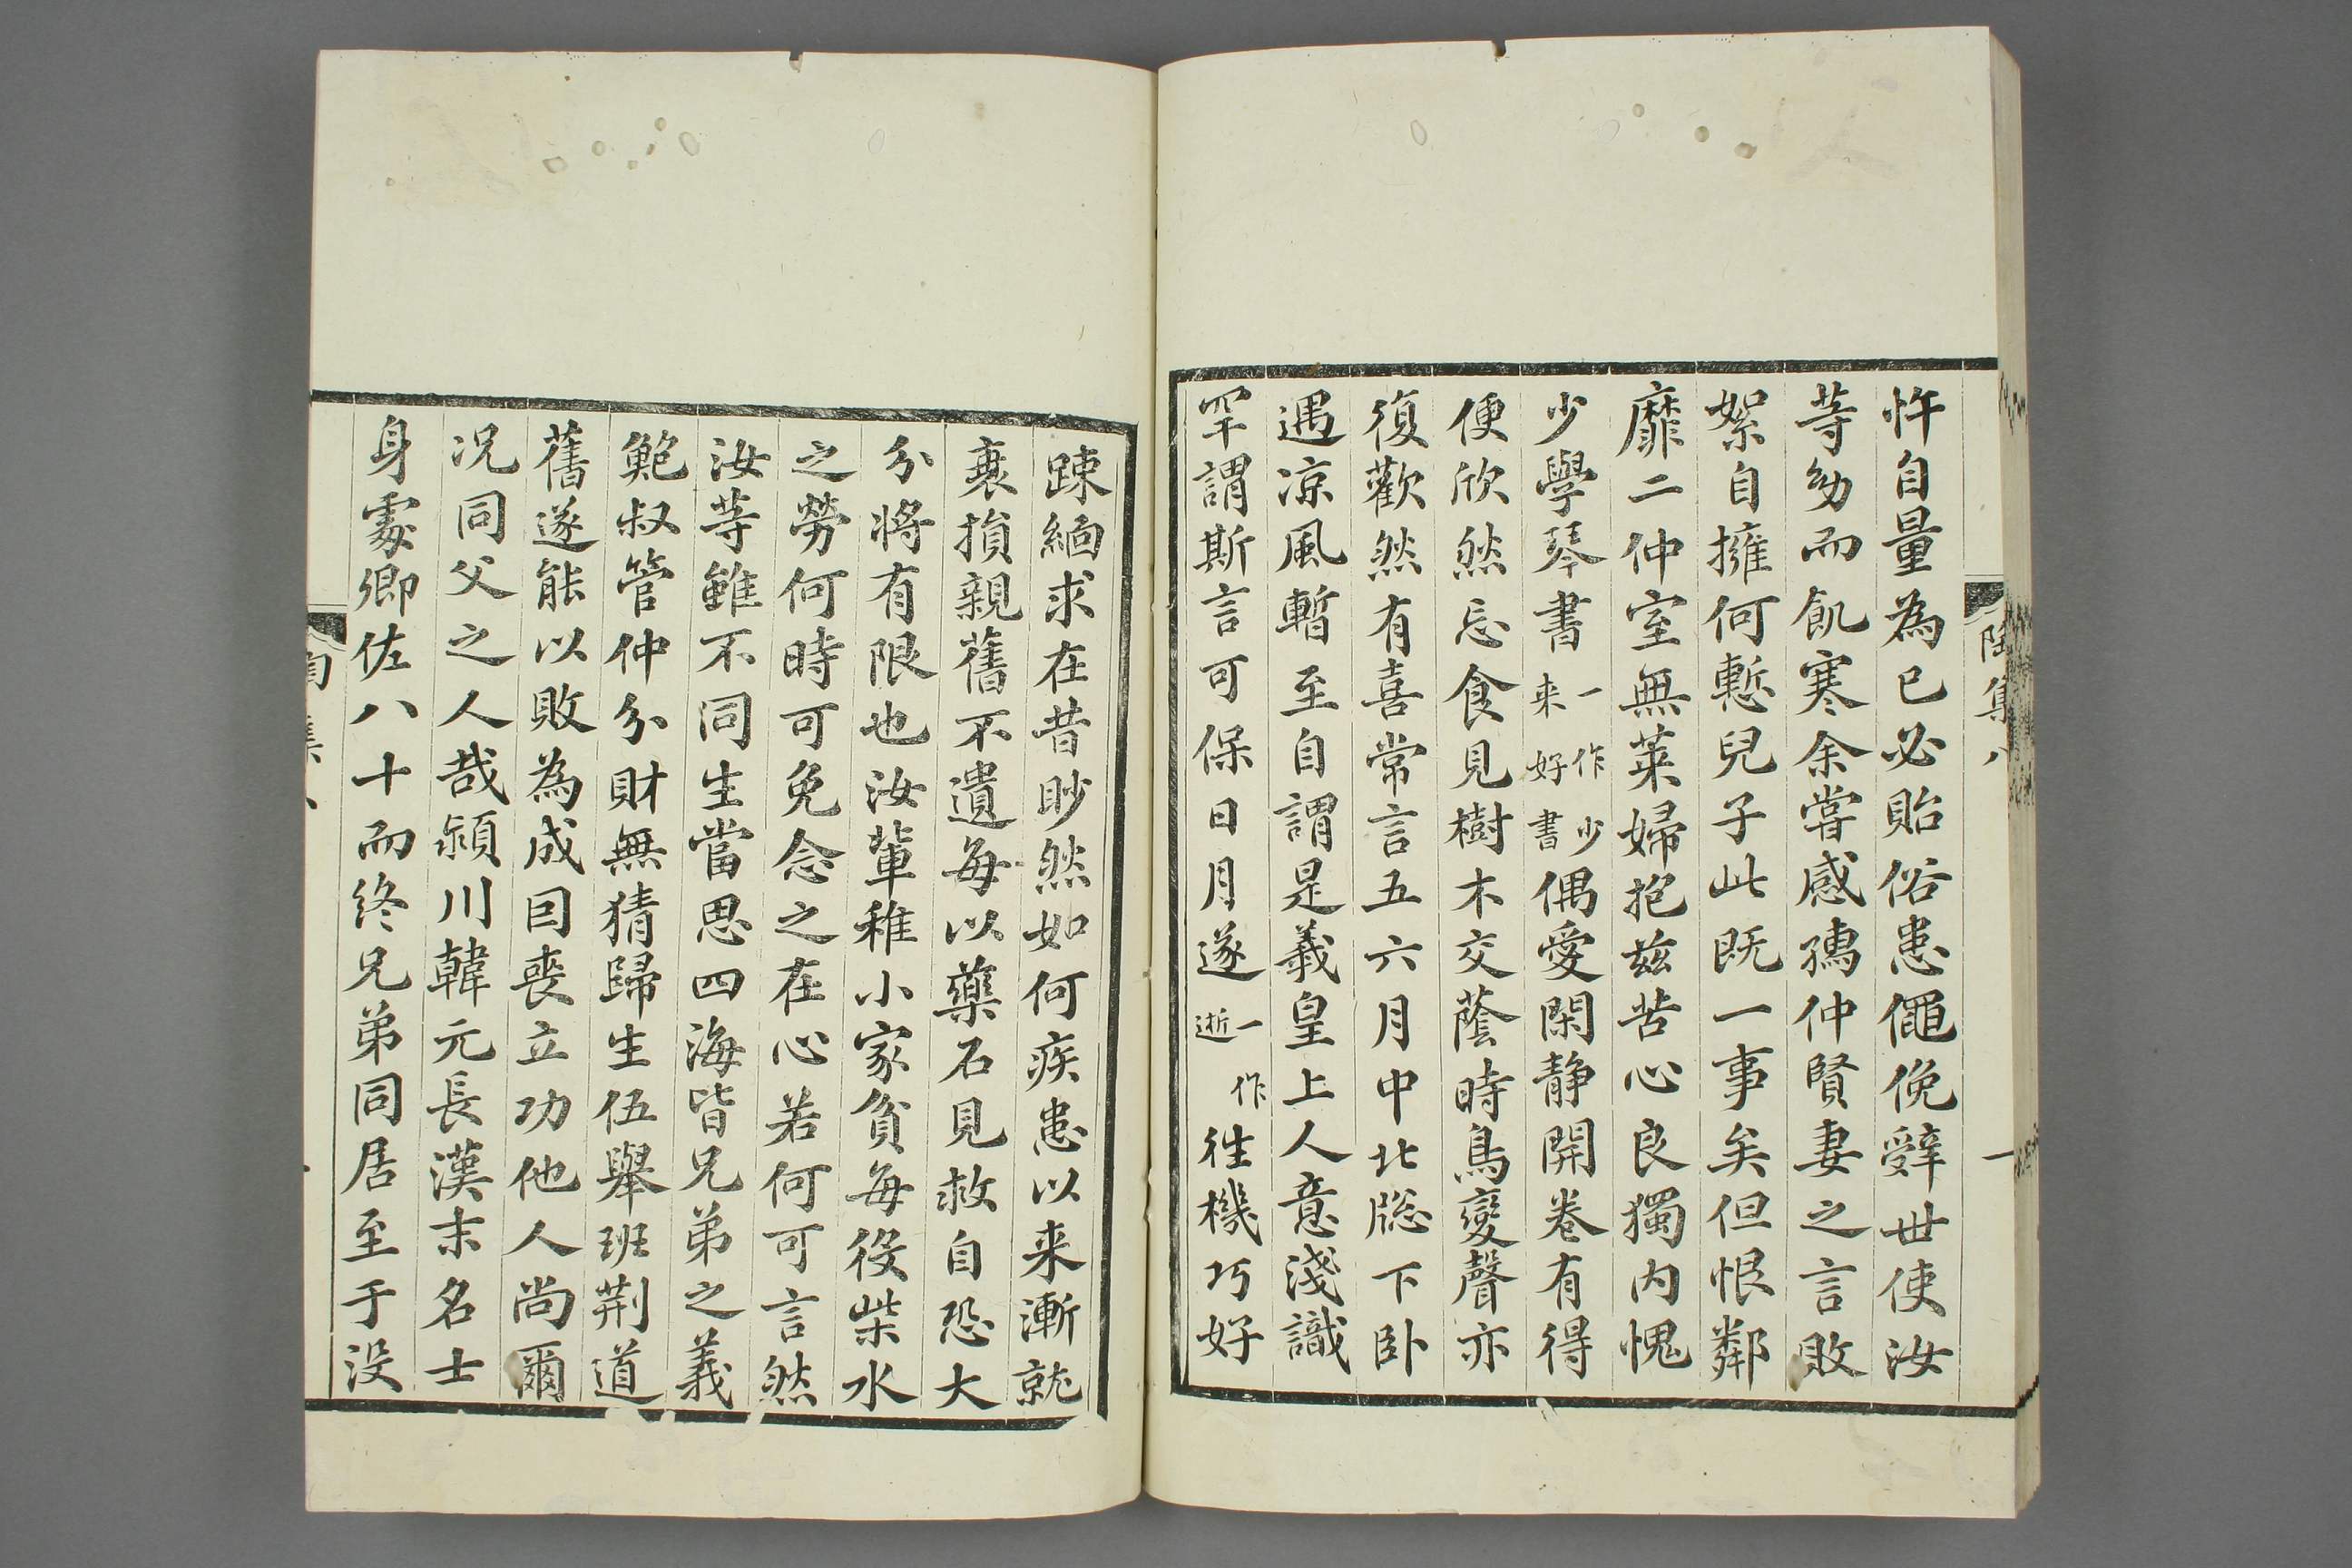 忤自量為已必貽俗患僶俛辭世使汝
等幼而飢寒余嘗感孺仲賢妻之言敗
絮自擁何慙兒子此既一事矣但恨鄰
靡二仲室無萊婦抱兹苦心良獨内愧
少學琴書一作少来好書偶愛閑静開卷有得
便欣然忘食見樹木交蔭時鳥變聲亦
復歡然有喜常言五六月中北牎下卧
遇凉風暫至自謂是羲皇上人意淺識
罕謂斯言可保日月遂一作逝往機巧好
陶集八
一
踈緬求在昔眇然如何疾患以来漸就
衰損親舊不遺每以藥石見救自恐大
分将有限也汝輩稚小家貧每役柴水
之勞何時可免念之在心若何可言然
汝等雖不同生當思四海皆兄弟之義
鮑叔管仲分財無猜歸生伍舉班荆道
舊遂能以敗為成因喪立功他人尚爾
况同父之人哉潁川韓元長漢末名士
身處卿佐八十而終兄弟同居至于没